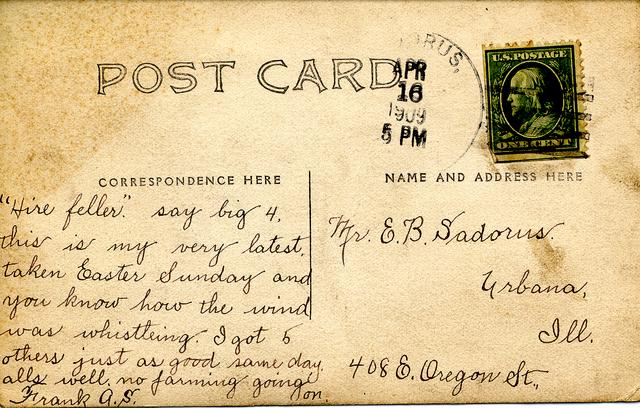 POST CARD
RUS,
APR
16
1909
5 PM
U.S. POSTAGE
ONE CENT
CORRESPONDENCE HERE
"Hire feller". say big 4,
this is my very latest,
taken Easter Sunday and
you know how the wind
was whistleing. I got 5
others just as good same day.
alls well. no farming going on.
Frank A.S.
NAME AND ADDRESS HERE
Mr. E. B. Sadorus.
Urbana,
Ill.
408 E. Oregon St.,